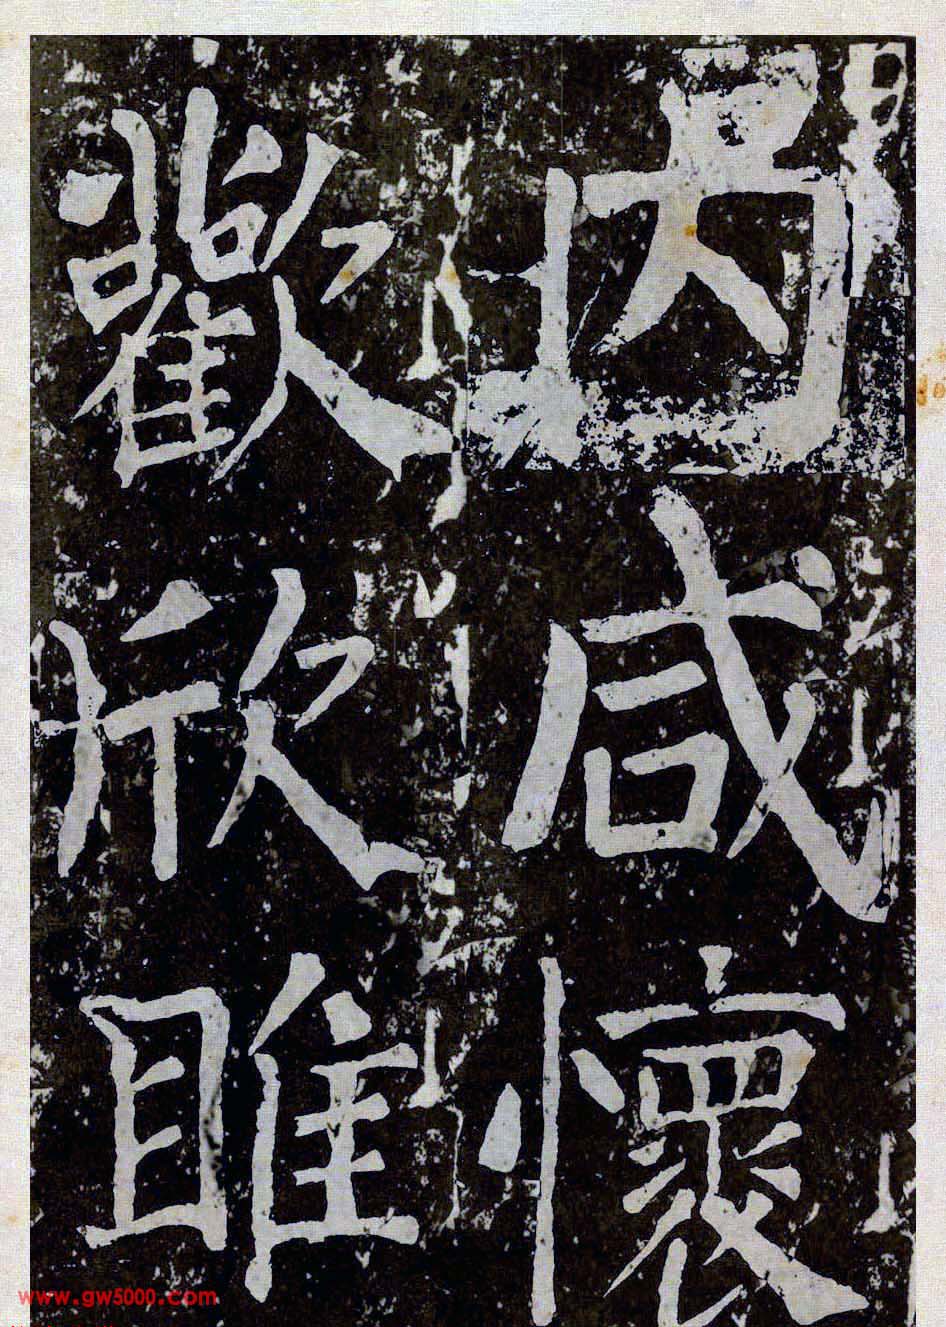 咸懷
歡欣睢
www.gw5000.com